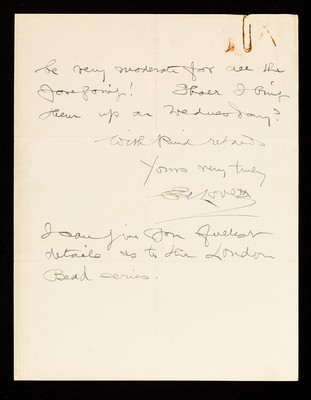 be very moderate for all the
foregoing! Shall I bring
them up on Wednesday?
With kind regards
Yours very truly
E Lovett
I can give you fullest
details as to the London
Bead series.